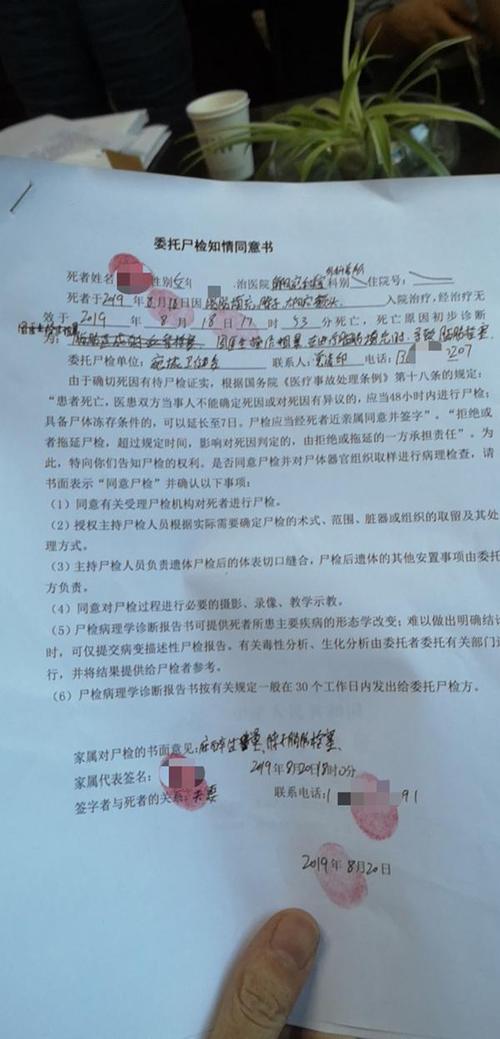 委托尸检知情同意书
死者姓名 性别女年 治医院 科别 住院号：
死者于2019年8月18日因 入院治疗，经治疗无
效于 2019 年 8 月 18 日 17 时 53 分死亡，死亡原因初步诊断
为：
委托尸检单位： 联系人： 电话：13 2207
由于确切死因有待尸检证实，根据国务院《医疗事故处理条例》第十八条的规定：
“患者死亡，医患双方当事人不能确定死因或对死因有异议的，应当48小时内进行尸检；
具备尸体冻存条件的，可以延长至7日。尸检应当经死者近亲属同意并签字”。“拒绝或
者拖延尸检，超过规定时间，影响对死因判定的，由拒绝或拖延的一方承担责任”。为
此，特向你们告知尸检的权利。是否同意尸检并对尸体器官组织取样进行病理检查，请
书面表示“同意尸检”并确认以下事项：
（1）同意有关受理尸检机构对死者进行尸检。
（2）授权主持尸检人员根据实际需要确定尸检的术式、范围、脏器或组织的取留及其处
理方式。
（3）主持尸检人员负责遗体尸检后的体表切口缝合，尸检后遗体的其他安置事项由委托
方负责。
（4）同意对尸检过程进行必要的摄影、录像、教学示教。
（5）尸检病理学诊断报告书可提供死者所患主要疾病的形态学改变；难以做出明确结
时，可仅提交病变描述性尸检报告。有关毒性分析、生化分析由委托者委托有关部门
行，并将结果提供给尸检者参考。
（6）尸检病理学诊断报告书按有关规定一般在 30 个工作日内发出给委托尸检方。
家属对尸检的书面意见：
家属代表签名： 2019年8月20日18时0分
签字者与死者的关系：夫妻 联系电话：1 91
2019年8月20日